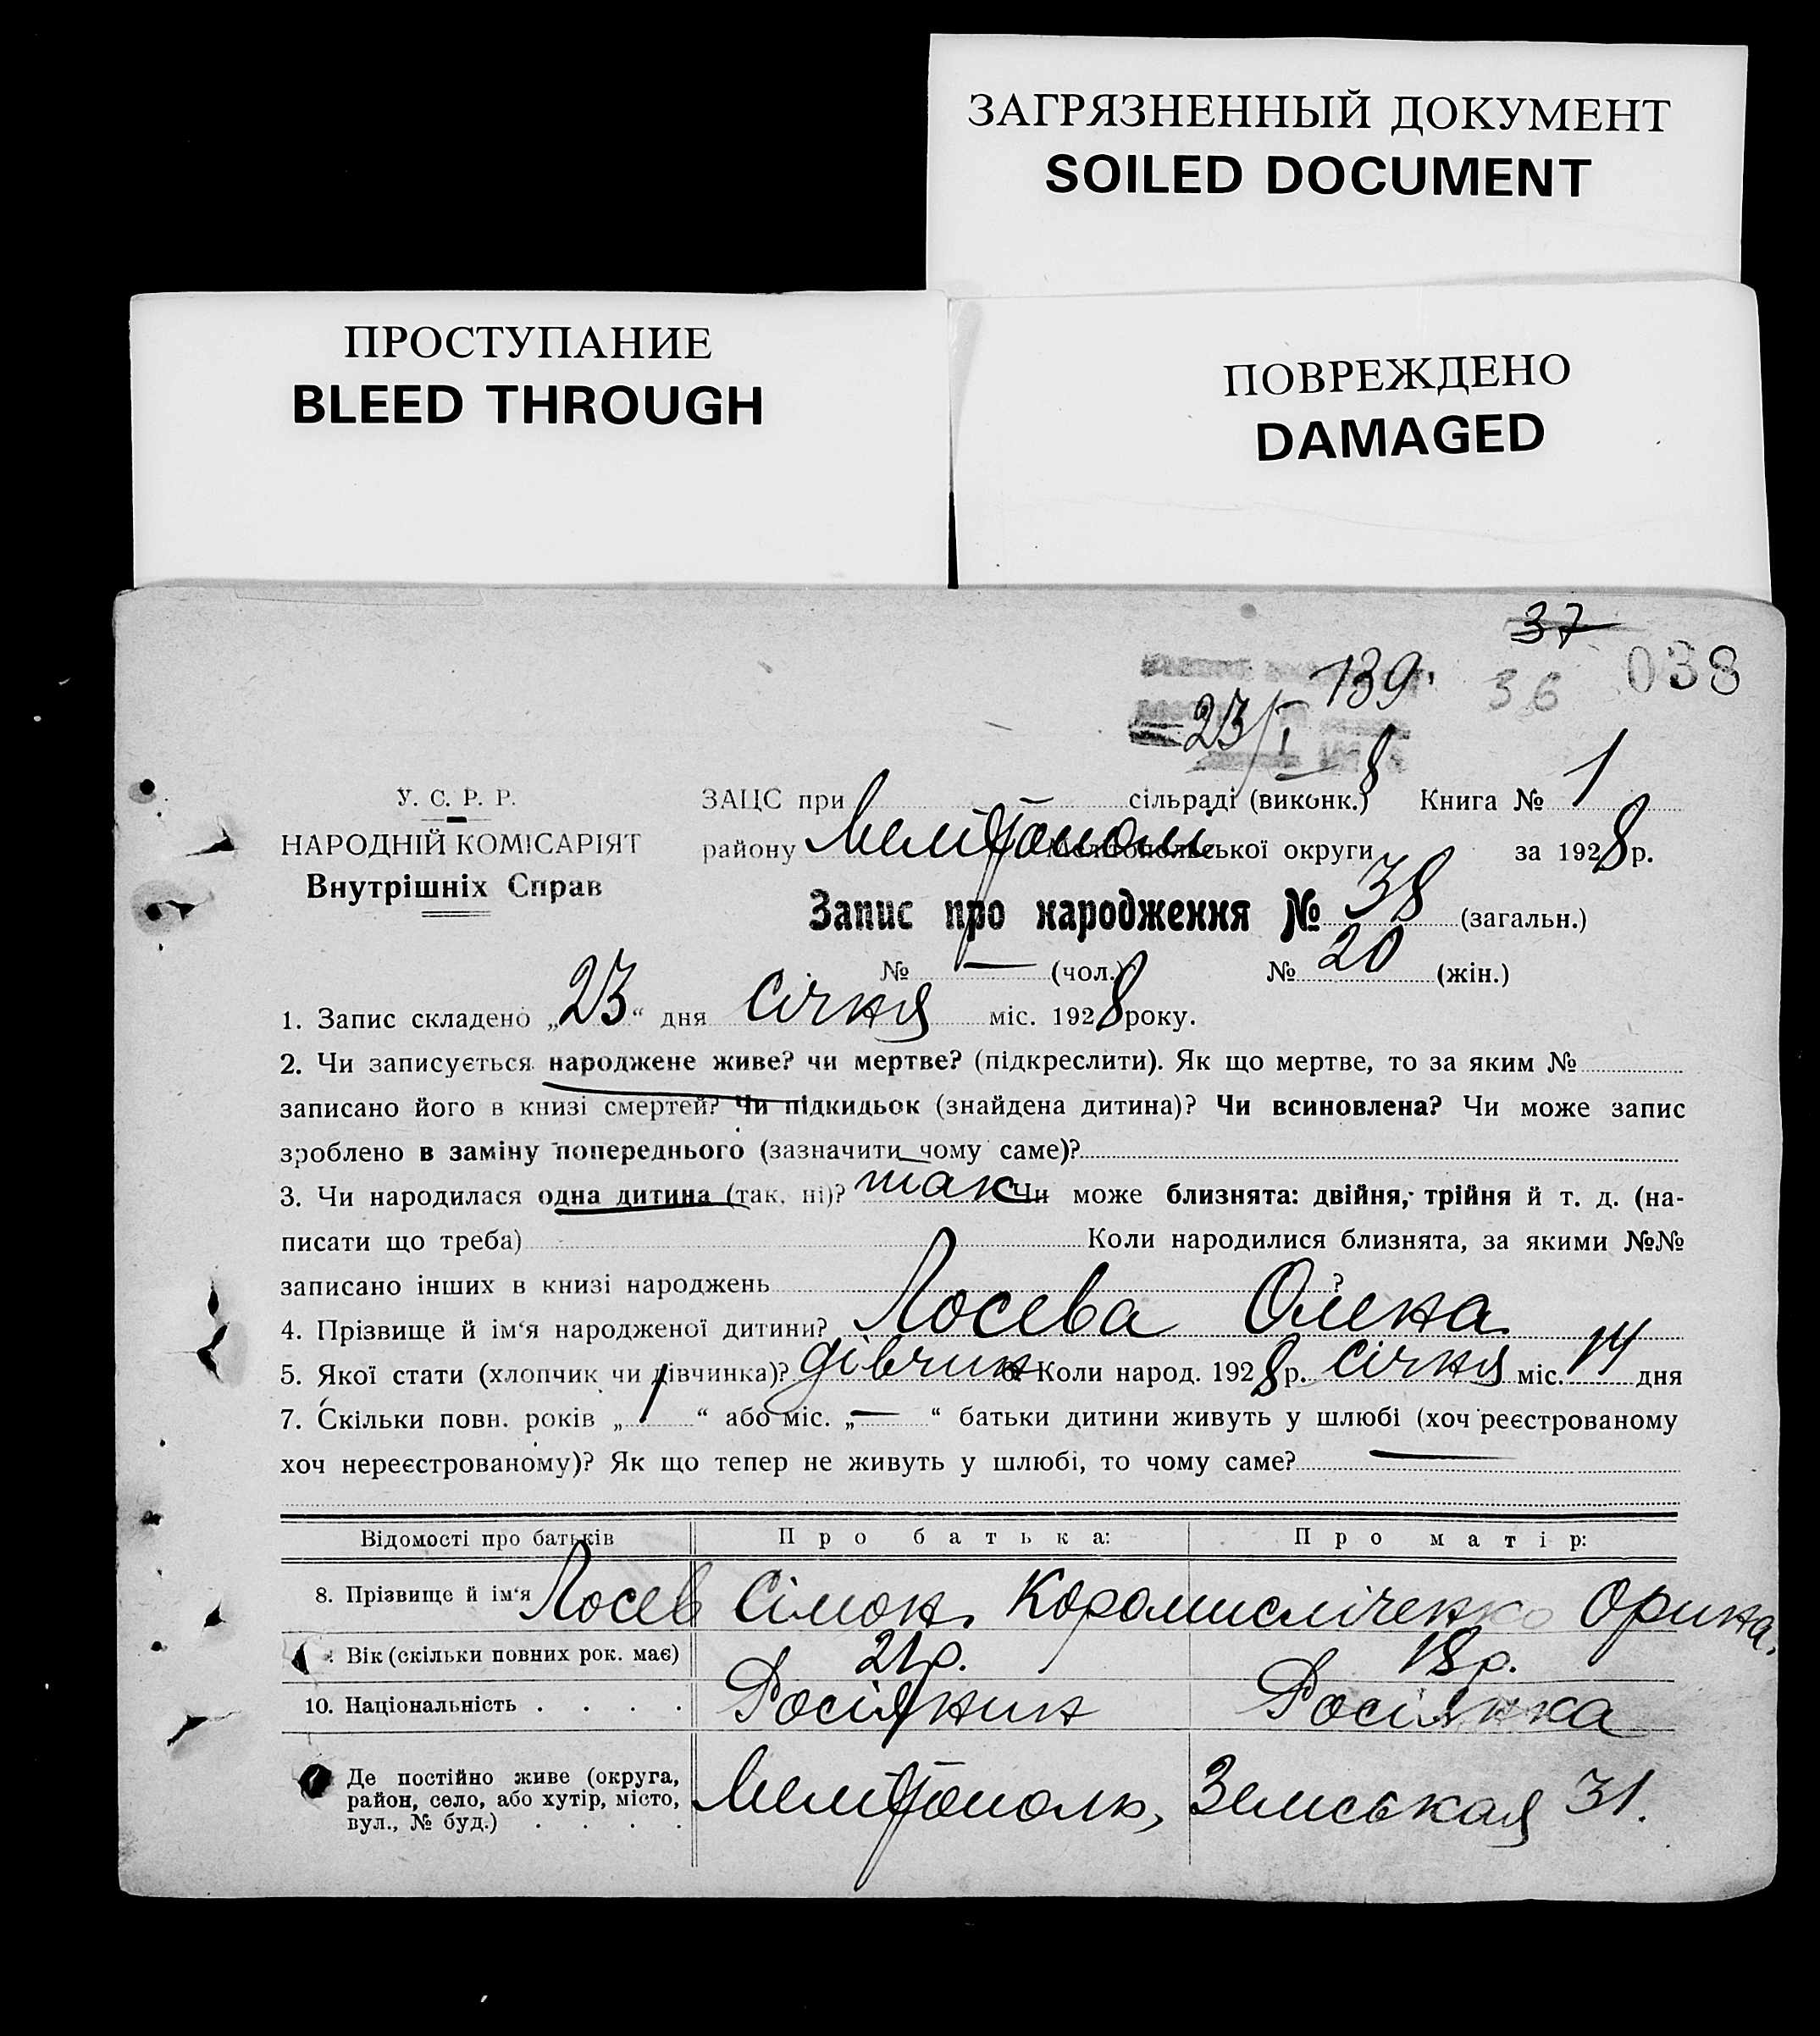 ЗАГРЯЗНЕННЫЙ ДОКУМЕНТ
SOILED DOCUMENT
ПРОСТУПАНИЕ
BLEED THROUGH
ПОВРЕЖДЕНО
DAMAGED
37
139. 36 038
23/I
8
У. С. Р. Р.
НАРОДНІЙ КОМІСАРІЯТ
Внутрішніх Справ
ЗАЦС при сільраді (виконк.) Книга № 1
району Мелітополь Мелітопольської округи за 1928 р.
Запис про народження № 38 (загальн.)
№ — (чол.) № 20 (жін.)
1. Запис складено „23“ дня січня міс. 1928 року.
2. Чи записується народжене живе? чи мертве? (підкреслити). Як що мертве, то за яким №
записано його в книзі смертей? Чи підкидьок (знайдена дитина)? Чи всиновлена? Чи може запис
зроблено в заміну попереднього (зазначити чому саме)?
3. Чи народилася одна дитина (так, ні)? так Чи може близнята: двійня, трійня й т. д. (на-
писати що треба) Коли народилися близнята, за якими №№
записано інших в книзі народжень ?
4. Прізвище й ім‘я народженої дитини? Лосева Олена
5. Якої стати (хлопчик чи дівчинка)? дівчин 6. Коли народ. 1928 р. січня міс. 14 дня
7. Скільки повн. років „1“ або міс. „—“ батьки дитини живуть у шлюбі (хоч реєстрованому
хоч нереєстрованому)? Як що тепер не живуть у шлюбі, то чому саме? —
Відомості про батьків Про батька: Про матір:
8. Прізвище й ім‘я Лосев Сімон. Коромисліченко Орина.
Вік (скільки повних рок. має) 21 р. 18 р.
10. Національність . . . . Росіянин Росіянка
Де постійно живе (округа,
район, село, або хутір, місто,
вул., № буд.) . . . . Мелітополь, Земськая 31.